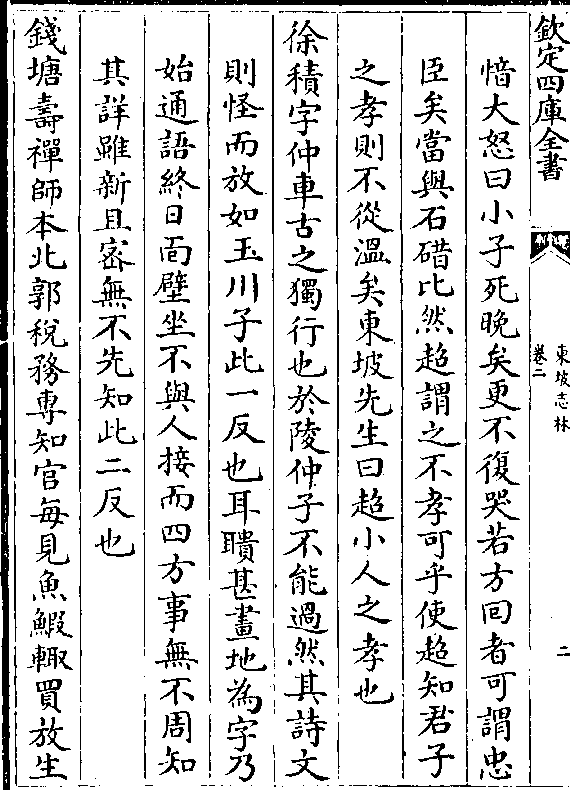 欽定四庫全書
東坡志林
卷二
二
愔大怒曰小子死晚矣更不復哭若方回者可謂忠
臣矣當與石碏比然超謂之不孝可乎使超知君子
之孝則不從溫矣東坡先生曰超小人之孝也
徐積字仲車古之獨行也於陵仲子不能過然其詩文
則怪而放如玉川子此一反也耳聵甚畫地為字乃
始通語終日面壁坐不與人接而四方事無不周知
其詳雖新且密無不先知此二反也
錢塘壽禪師本北郭稅務專知官每見魚鰕輙買放生